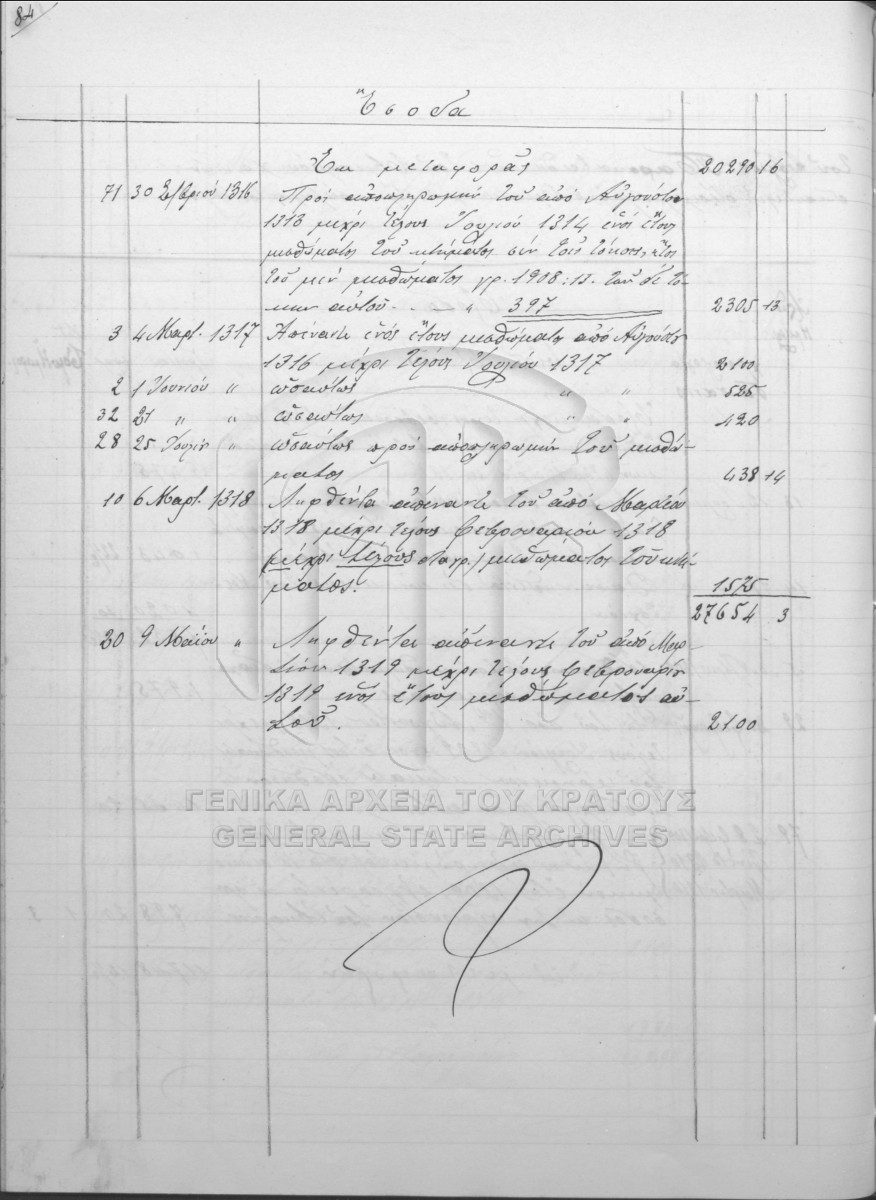 84
Ἔσοδα
Ἐκ μεταφορᾶς 20290 16
71 30 Σ/βρίου 1316 Πρὸς ἀποπληρωμὴν τοῦ ἀπὸ Αὐγούστου
1313 μέχρι τέλους Ἰουλίου 1314 ἑνὸς ἔτους
μισθώματος τοῦ κτήματος σὺν τοῖς τόκοις, ἤτοι
τοῦ μὲν μισθώματος γρ. 1908:13. τοῦ δὲ τό-
κου αὐτοῦ . . — „ 397 2305 13
3 4 Μαρτ. 1317 Ἀπέναντι ἑνὸς ἔτους μισθώματος ἀπὸ Αὐγούστου
1316 μέχρι τέλους Ἰουλίου 1317 2100
2 1 Ἰουνίου „ ὡσαύτως „ „ 525
32 21 „ „ ὡσαύτως „ „ 420
28 25 Ἰουλίου „ ὡσαύτως πρὸς ἀποπληρωμὴν τοῦ μισθώ-
ματος 438 14
10 6 Μαρτ. 1318 Ληφθέντα ἀπέναντι τοῦ ἀπὸ Μαρτίου
1318 μέχρι τέλους Φεβρουαρίου 1318
(μέχρι τέλους) μισθώματος τοῦ κτή-
ματος. 1575
27654 3
30 9 Μαΐου „ Ληφθέντα ἀπέναντι τοῦ ἀπὸ Μαρ-
τίου 1319 μέχρι τέλους Φεβρουαρίου
1319 ἑνὸς ἔτους μισθώματος αὐ-
τοῦ. 2100
ΓΕΝΙΚΑ ΑΡΧΕΙΑ ΤΟΥ ΚΡΑΤΟΥΣ
GENERAL STATE ARCHIVES